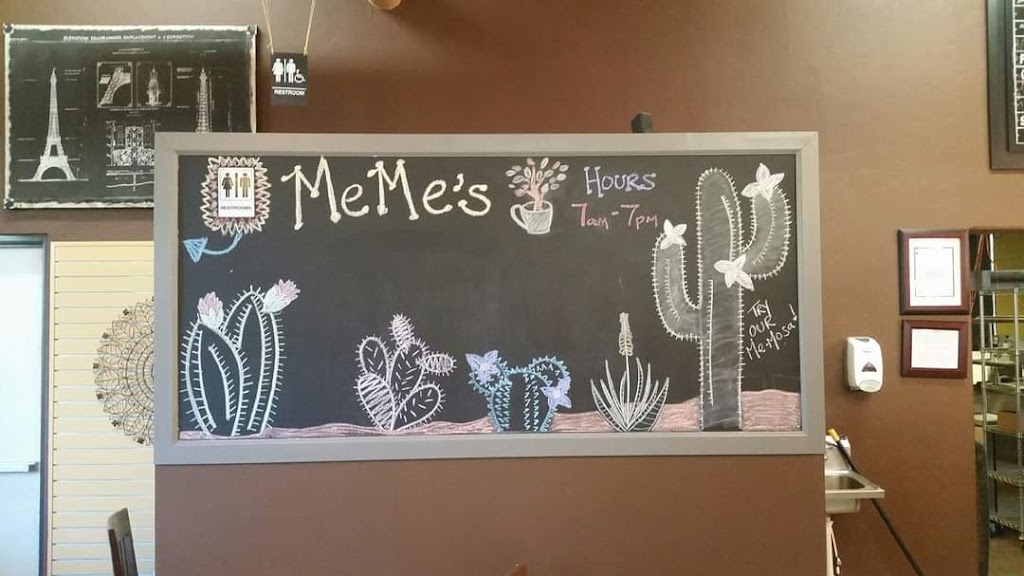 RESTROOM
RESTROOMS
MeMe's
HOURS
7am-7pm
TRY
OUR